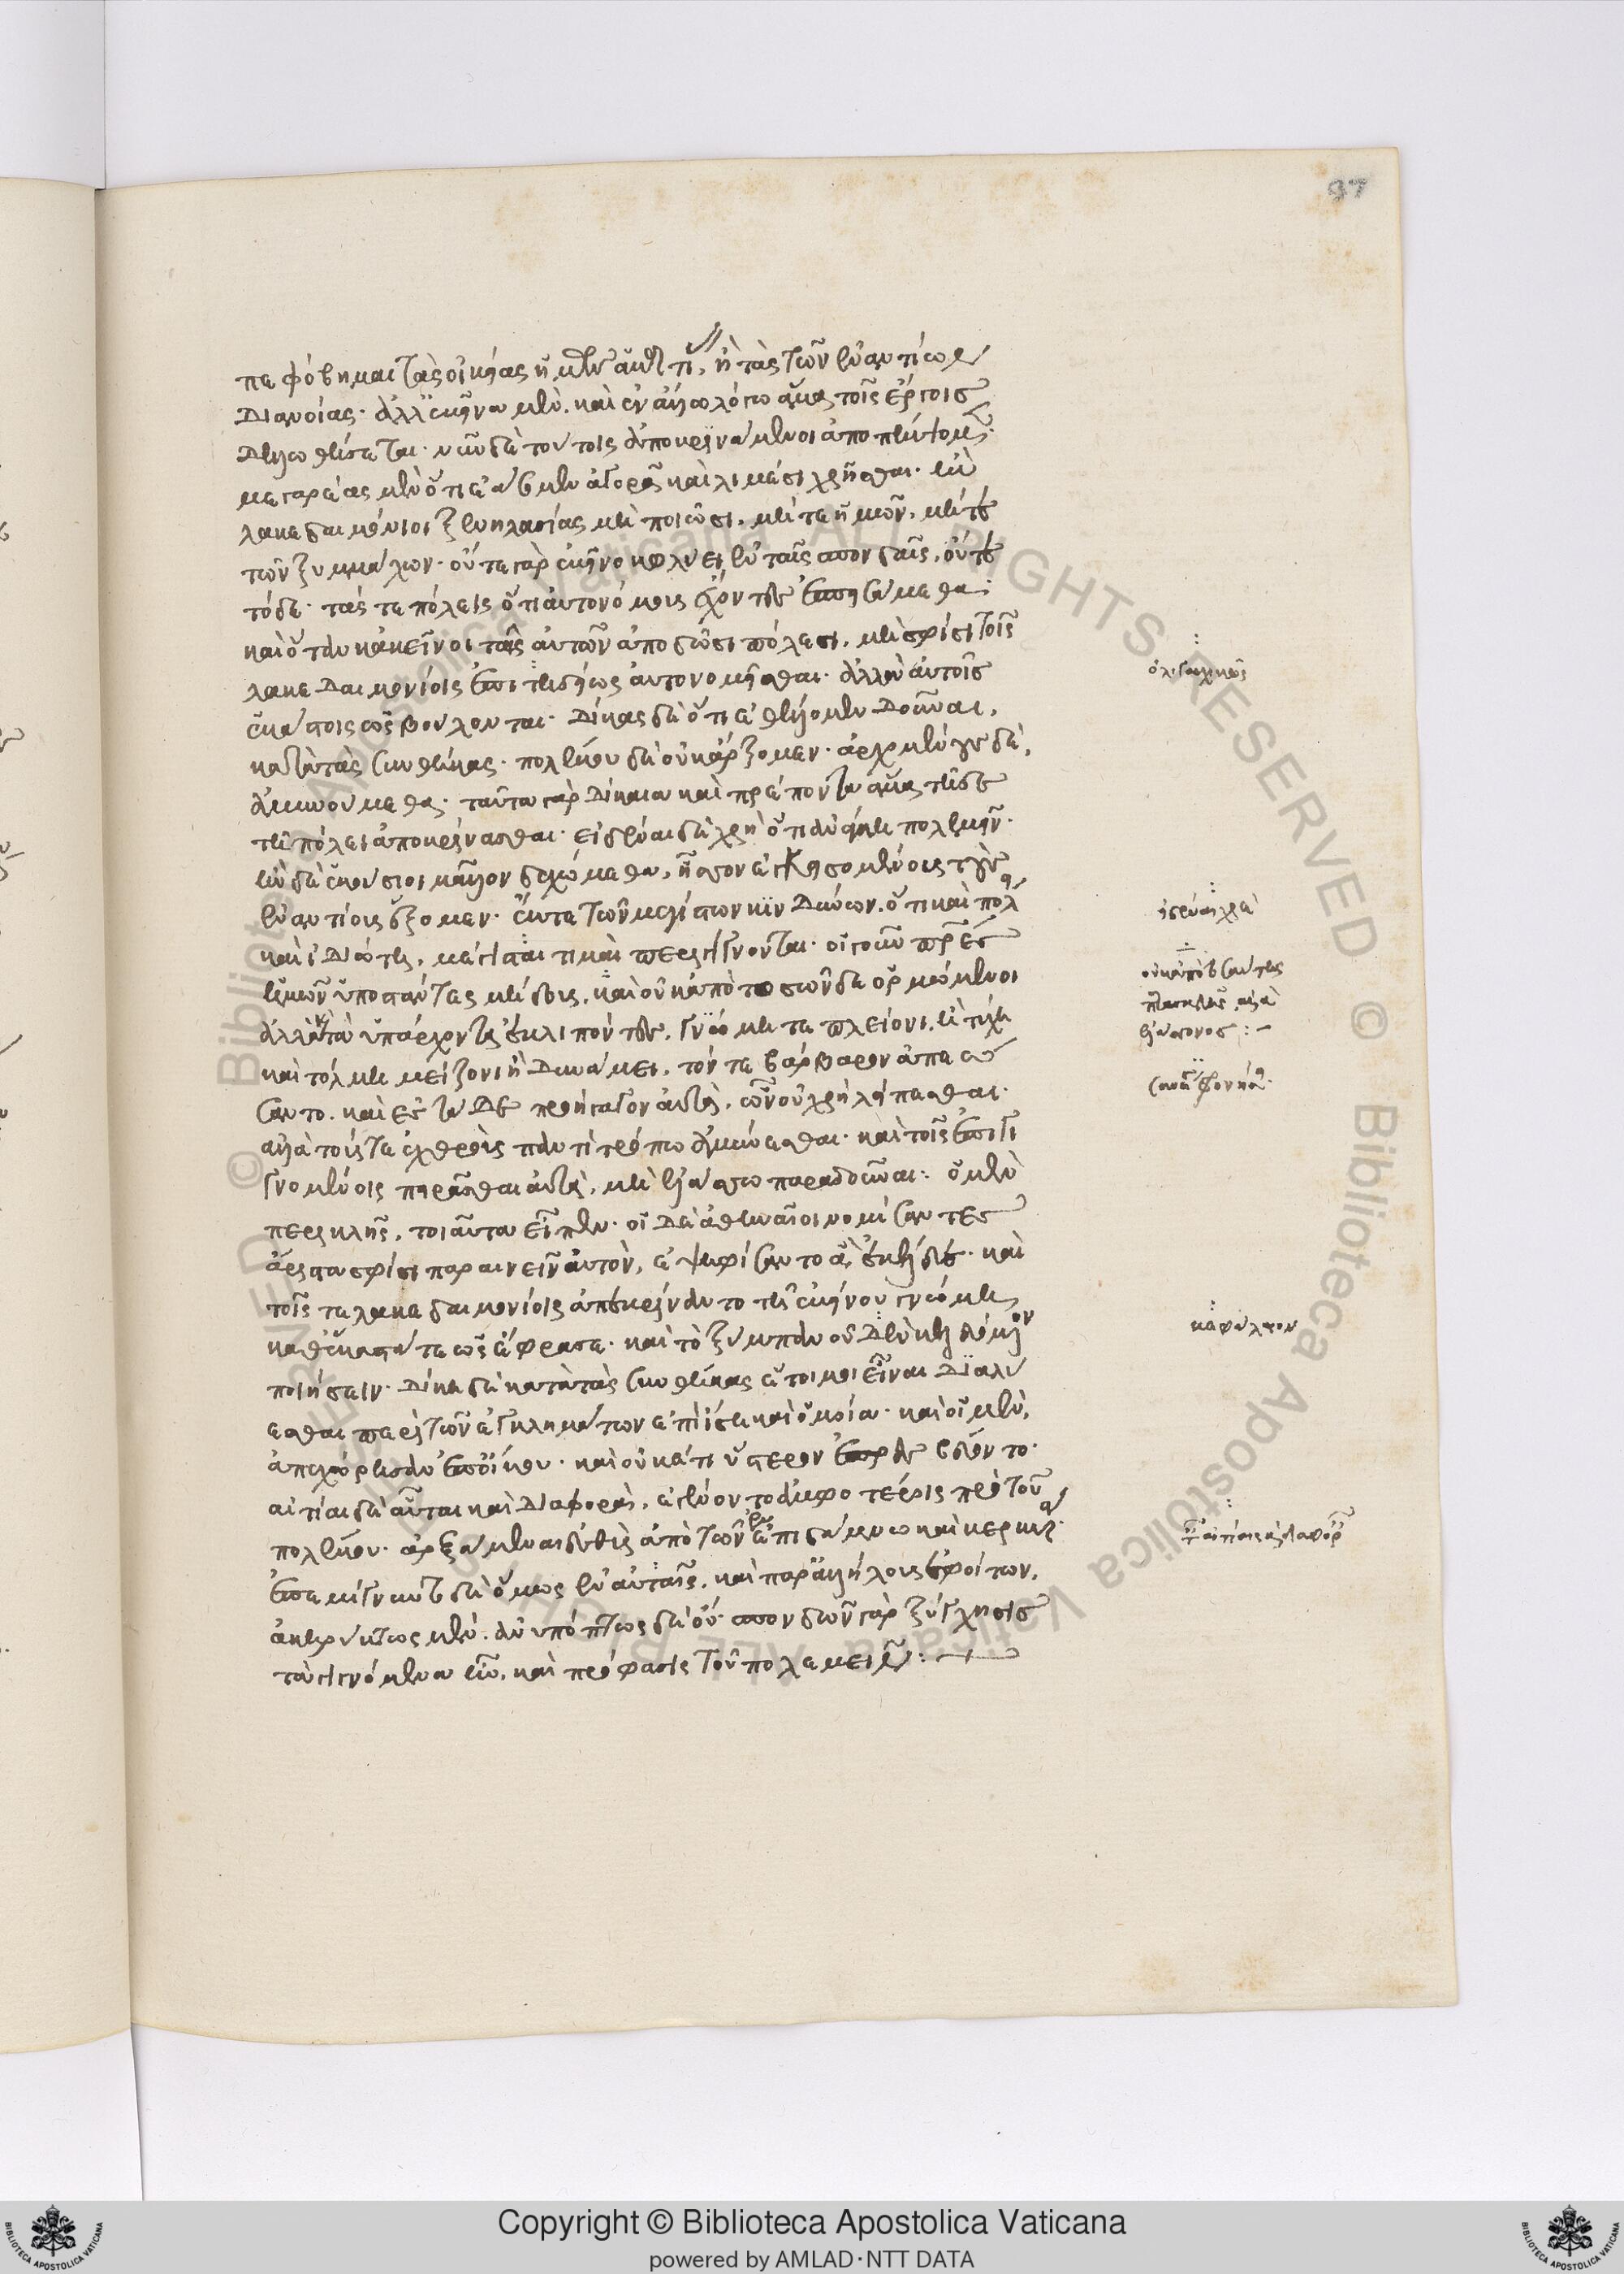 πεφόβημαι τὰς οἰκείας ἡμῶν ἁμαρτί, ἢ τὰς τῶν ἐναντίων
διανοίας· ἀλλ' ἐκεῖνα μὲν. καὶ ἐν ἄλλω λόγω ἅμα τοῖς ἔργοις
δηλωθήσεται· νῦν δὲ τούτοις ἀποκρινάμενοι ἀποπέμψομεν·
μεγαρέας μὲν ὅτι ἐάσομεν ἀγορᾶ καὶ λιμέσι χρῆσθαι· ἢν
λακεδαιμόνιοι ξενηλασίας μὴ ποιῶσι. μήτε ἡμῶν. μήτε
τῶν ξυμμάχων· οὔτε γὰρ ἐκεῖνο κωλύει ἐν ταῖς σπονδαῖς. οὔτε
τόδε· τάς τε πόλεις ὅτι αὐτονόμους
καὶ ὅταν κἀκεῖνοι ταῖς αὐτῶν ἀποδῶσι πόλεσι. μὴ σφίσι τοῖς
λακεδαιμονίοις ἐπιτηδείως αὐτονομεῖσθαι· ἀλλὰ αὐτοῖς
ἑκάστοις ὡς βούλονται· δίκας δὲ ὅτι ἐθέλομεν δοῦναι,
κατὰ τὰς συνθήκας· πολέμου δὲ οὐκ ἄρξομεν· ἀρχομένους δὲ,
ἀμυνούμεθα· ταῦτα γὰρ δίκαια καὶ πρέποντα ἅμα τῆδε
τῆ πόλει ἀποκρίνασθαι· εἰδέναι δὲ χρὴ ὅτι ἀνάγκη πολεμεῖν·
ἢν δὲ ἑκούσιοι μᾶλλον δεχώμεθα, ἧσσον ἐγκεισομένους τοὺς
ἐναντίους ἕξομεν· ἔκ τε τῶν μεγίστων κινδύνων. ὅτι καὶ πόλ
καὶ ἰδιώτη, μέγισται τιμαὶ περιγίγνονται· οἱ γοῦν πρες
ἡμῶν ὑποστάντες μήδους. καὶ οὐκ ἀπὸ τοσῶνδε ὁρμώμενοι
ἀλλὰ καὶ τὰ ὑπάρχοντα ἐκλιπόντες, γνώμη τε πλείονι. ἢ τύχη
καὶ τόλμη μείζονι ἢ δυνάμει. τόν τε βάρβαρον ἀπεώ
σαντο. καὶ ἐς τάδε προήγαγον αὐτά, ὧν οὐ χρὴ λείπεσθαι·
ἀλλὰ τούς τε ἐχθροὺς παντὶ τρόπω ἀμύνεσθαι· καὶ τοῖς ἐπιγι
γνομένοις πειρᾶσθαι αὐτὰ. μὴ ἐλάσσω παραδοῦναι: ὁ μὲν
περικλῆς, τοιαῦτα εἶπεν· οἱ δὲ ἀθηναῖοι νομίσαντες
ἄριστα σφίσι παραινεῖν αὐτὸν, ἐψηφίσαντο ἃ ἐκέλευε· καὶ
τοῖς τε λακεδαιμονίοις ἀπεκρίναντο τῆ ἐκείνου γνώμη
καθ' ἕκαστά τε ὡς ἔφρασε· καὶ τὸ ξύμπαν οὐδὲν κελευόμενον
ποιήσειν· δίκη δὲ κατὰ τὰς συνθήκας ἕτοιμοι εἶναι διαλύ
εσθαι περὶ τῶν ἐγκλημάτων ἐπὶ ἴση καὶ ὁμοία· καὶ οἱ μὲν,
ἀπεχώρησαν ἐπ' οἴκου· καὶ οὐκέτι ὕστερον ἐπρεσβεύοντο·
αἰτίαι δὲ αὗται καὶ διαφοραὶ, ἐγένοντο ἀμφοτέροις πρὸ τοῦ
πολέμου· ἀρξάμεναι εὐθὺς ἀπὸ τῶν ἐν ἐπιδάμνω καὶ κερκύρα·
ἐπεμίγνυντο δὲ ὅμως ἐν αὐταῖς. καὶ παρ' ἀλλήλους ἐφοίτων,
ἀκηρύκτως μὲν. ἀνυπόπτως δὲ οὔ· σπονδῶν γὰρ ξύγχυσις
τὰ γιγνόμενα ἦν. καὶ πρόφασις τοῦ πολεμεῖν:
ὀλιγαρχικῶς
οὐκ ἀποβαλόντες
καθ' ἕκαστον
97
© Biblioteca Apostolica Vaticana ALL RIGHTS RESERVED
Copyright © Biblioteca Apostolica Vaticana
powered by AMLAD·NTT DATA